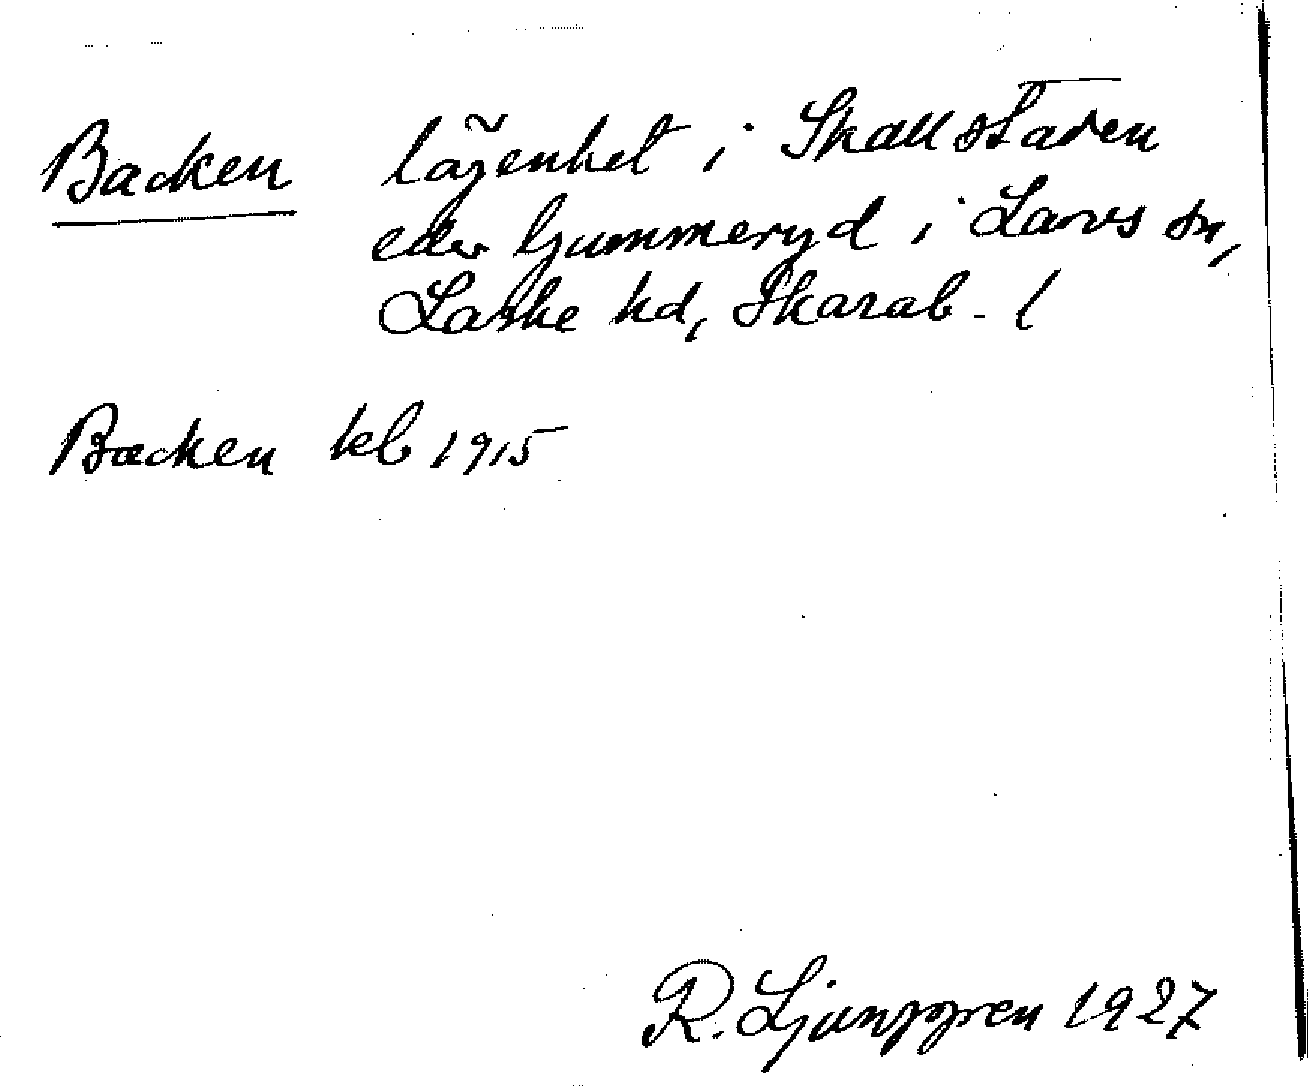 Backen lägenhet i Skallstaden
eller Gummeryd i Larvs sn,
Laske hd, Skarab. l
Backen kb 1915
R. Ljunggren 1927